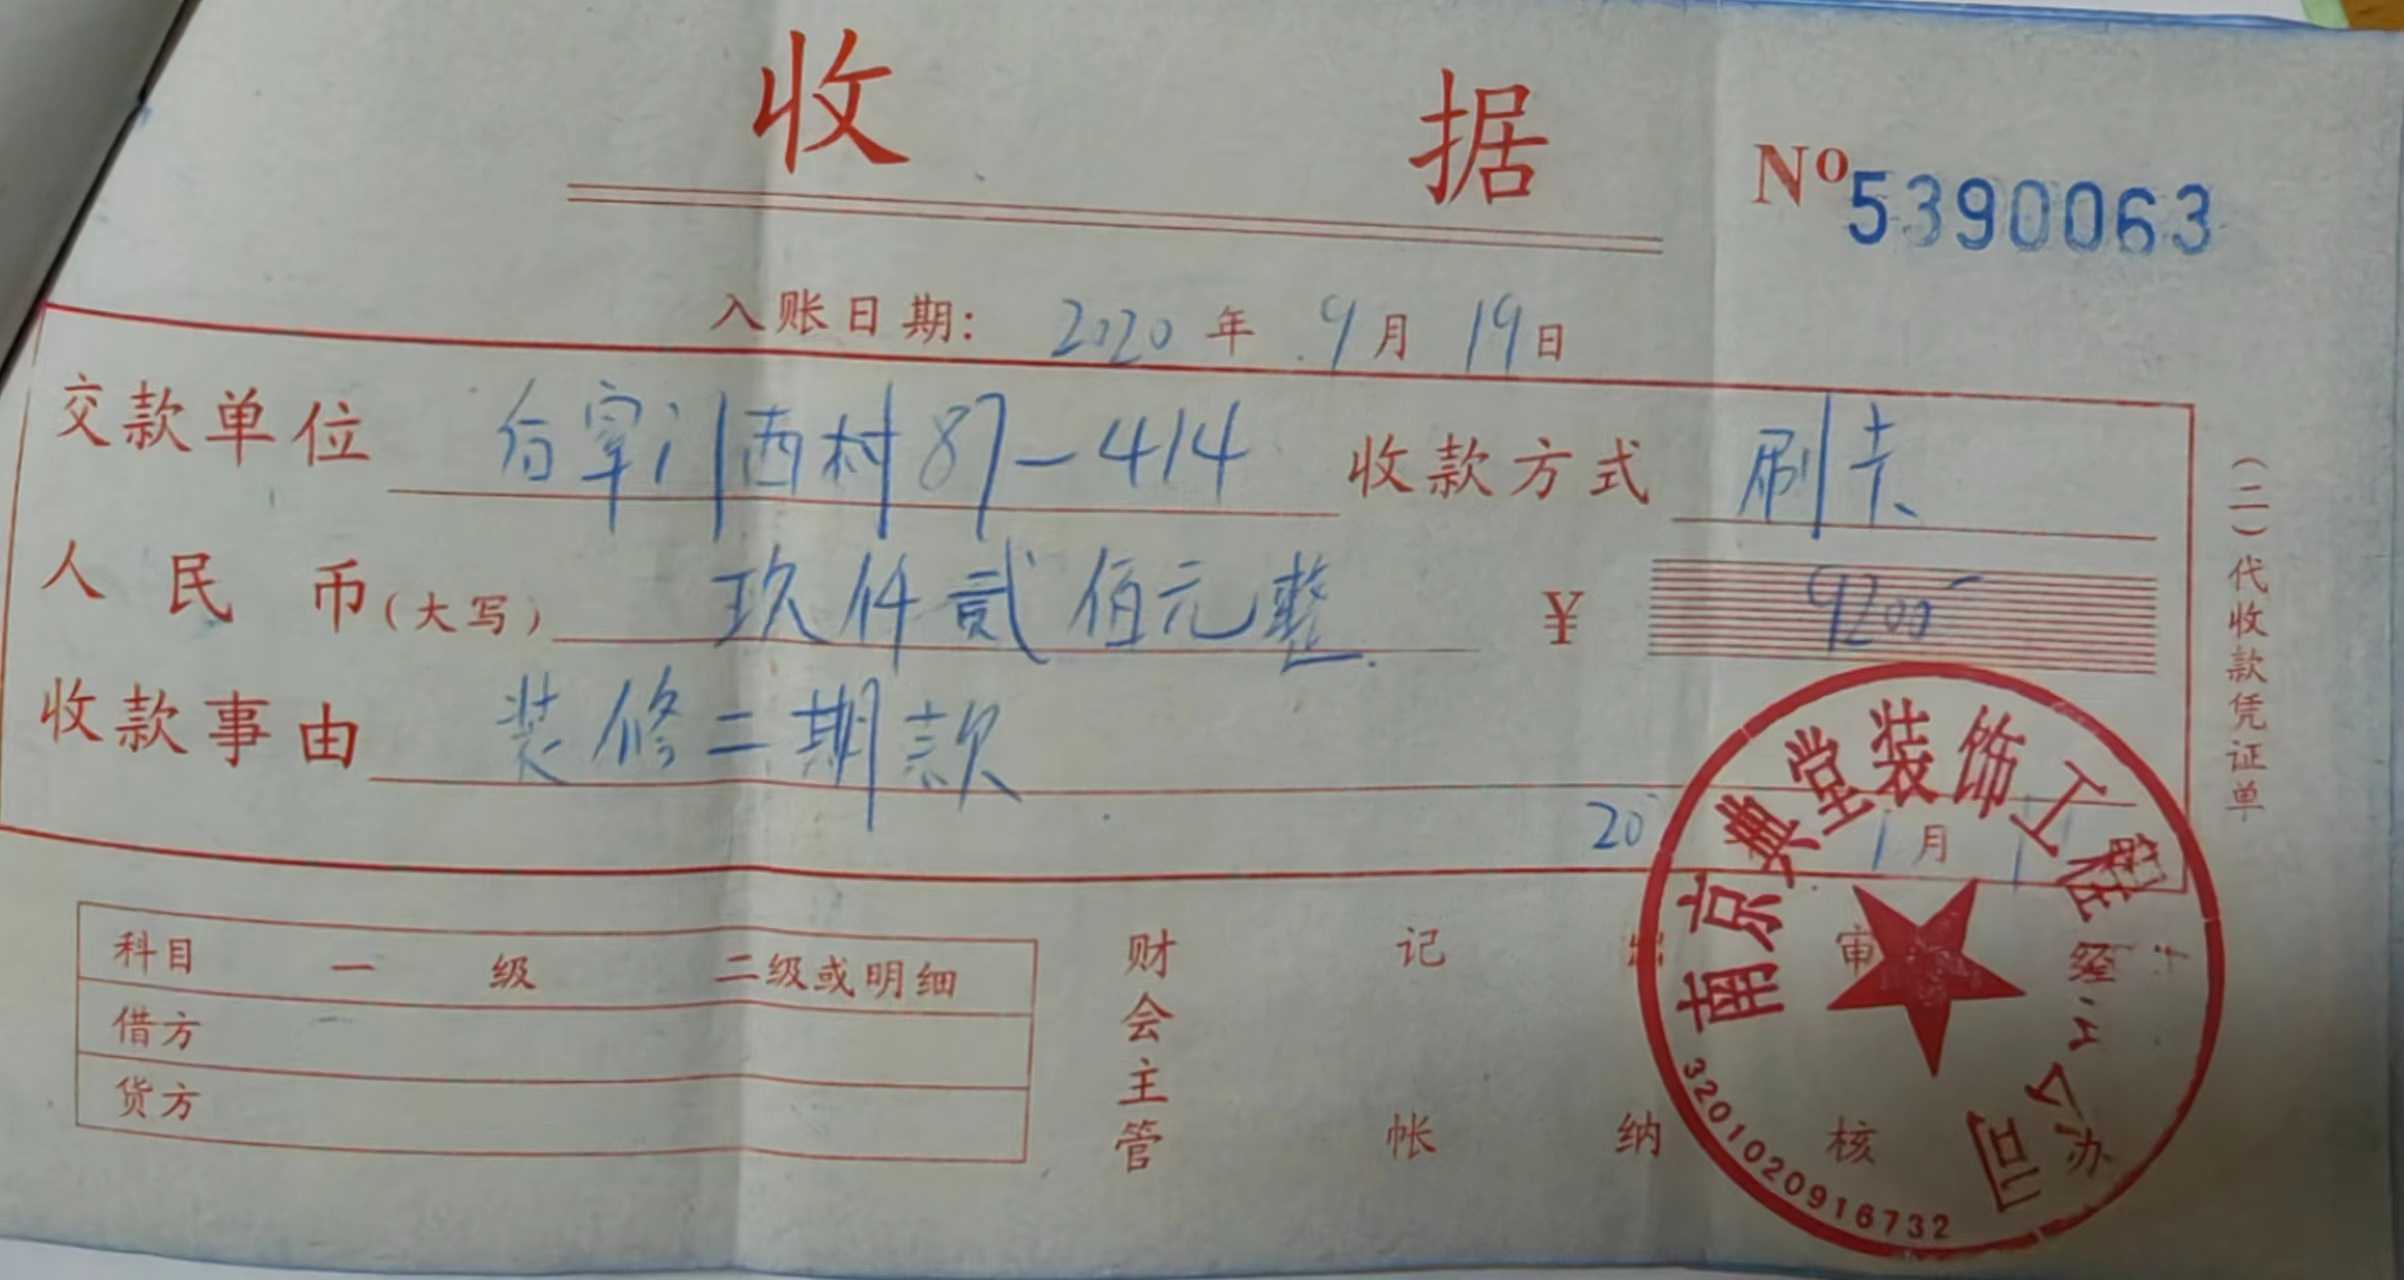 收 据
Nº 5390063
入账日期: 2020 年 9 月 19 日
交款单位 后宰门西村87-414 收款方式 刷卡
人民币(大写) 玖仟贰佰元整 ¥ 9200-
收款事由 装修二期款
20 月
(二)代收款凭证单
科目 一 级 二级或明细
借方
货方
财会主管 记帐 出纳 审核 经办
南京典堂装饰工程 公司
3201020916732